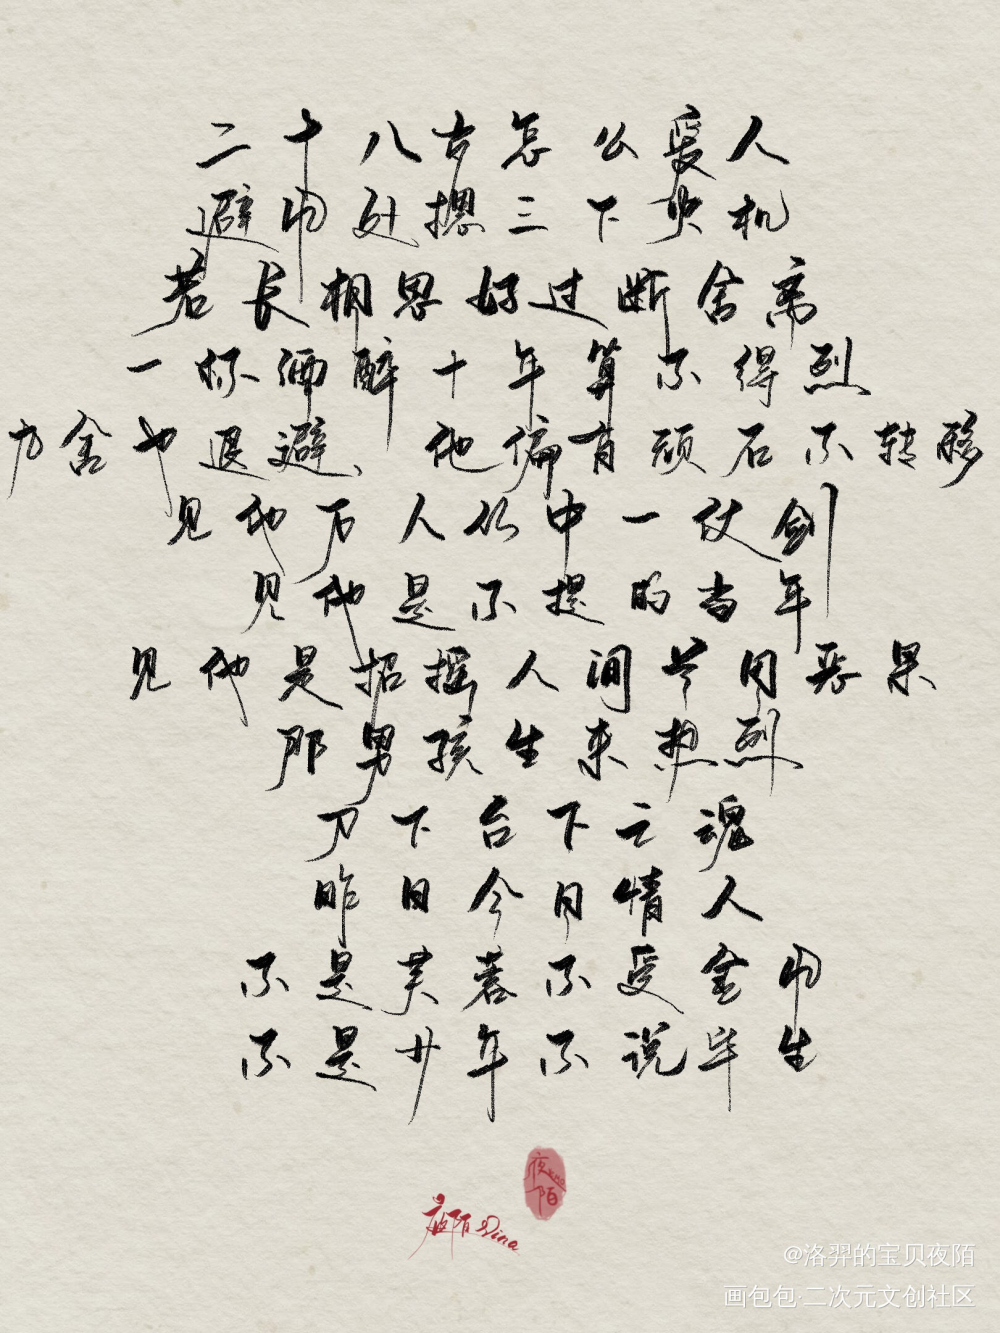 二十八古怎么爱人
避雨处摁三下火机
若长相思好过断舍离
一杯酒醉十年算不得烈
刀舍也退避、他偏有顽石不转移
见他万人从中一仗剑
见他是不提的当年
见他是招摇人间苦用恶果
那男孩生来热烈
刀下台下亡魂
昨日今日情人
不是芙蓉不受金雨
不是廿年不说毕生
夜陌
夜陌 Nina
@洛羿的宝贝夜陌
画包包·二次元文创社区